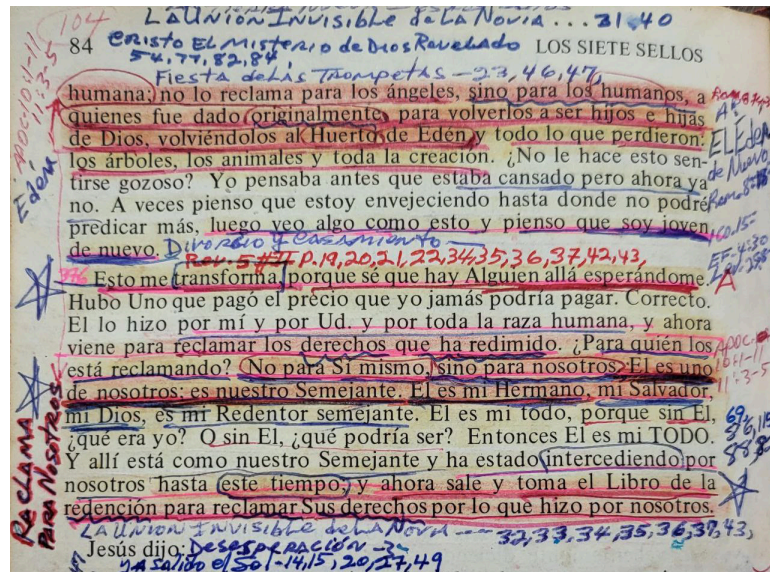 LA UNION INVISIBLE de LA NOVIA ... 31,40
104
84 CRISTO EL MISTERIO de DIOS Revelado LOS SIETE SELLOS
54,77,82,84,
Fiesta de LAS TROMPETAS - 23,46,47,
humana; no lo reclama para los ángeles, sino para los humanos, a
quienes fue dado originalmente, para volverlos a ser hijos e hijas
de Dios, volviéndolos al Huerto de Edén y todo lo que perdieron:
los árboles, los animales y toda la creación. ¿No le hace esto sen-
tirse gozoso? Yo pensaba antes que estaba cansado pero ahora ya
no. A veces pienso que estoy envejeciendo hasta donde no podré
predicar más, luego veo algo como esto y pienso que soy joven
de nuevo. Divorcio y Casamiento
Rev. 5 # II P. 19,20,21,22,34,35,36,37,42,43,
Esto me transfoma, porque sé que hay Alguen allá esperándome.
Hubo Uno que pagó el precio que yo jamás podría pagar. Correcto.
El lo hizo por mí y por Ud. y por toda la raza humana, y ahora
viene para reclamar los derechos que ha redimido. ¿Para quién los
está reclamando? No para Sí mismo, sino para nosotros. El es uno
de nosotros: es nuestro Semejante. El es mi Hermano, mi Salvador,
mi Dios, es mi Redentor semejante. El es mi todo, porque sin El,
¿qué era yo? O sin El, ¿qué podría ser? Entonces El es mi TODO.
Y allí está como nuestro Semejante y ha estado intercediendo por
nosotros hasta este tiempo, y ahora sale y toma el Libro de la
redención para reclamar Sus derechos por lo que hizo por nosotros.
LA UNION INVISIBLE de LA NOVIA 32,33,34,35,36,37,43,
Jesús dijo: Desesperación - 3-
ya Salido el Sol - 14,15,20,27,49
APOC: 10:1-11
11:3-5
Edén
RECLAMA
PARA NOSOTROS
EL Edén
de Nuevo
A
APOC:
10:1-11
11:3-5
69